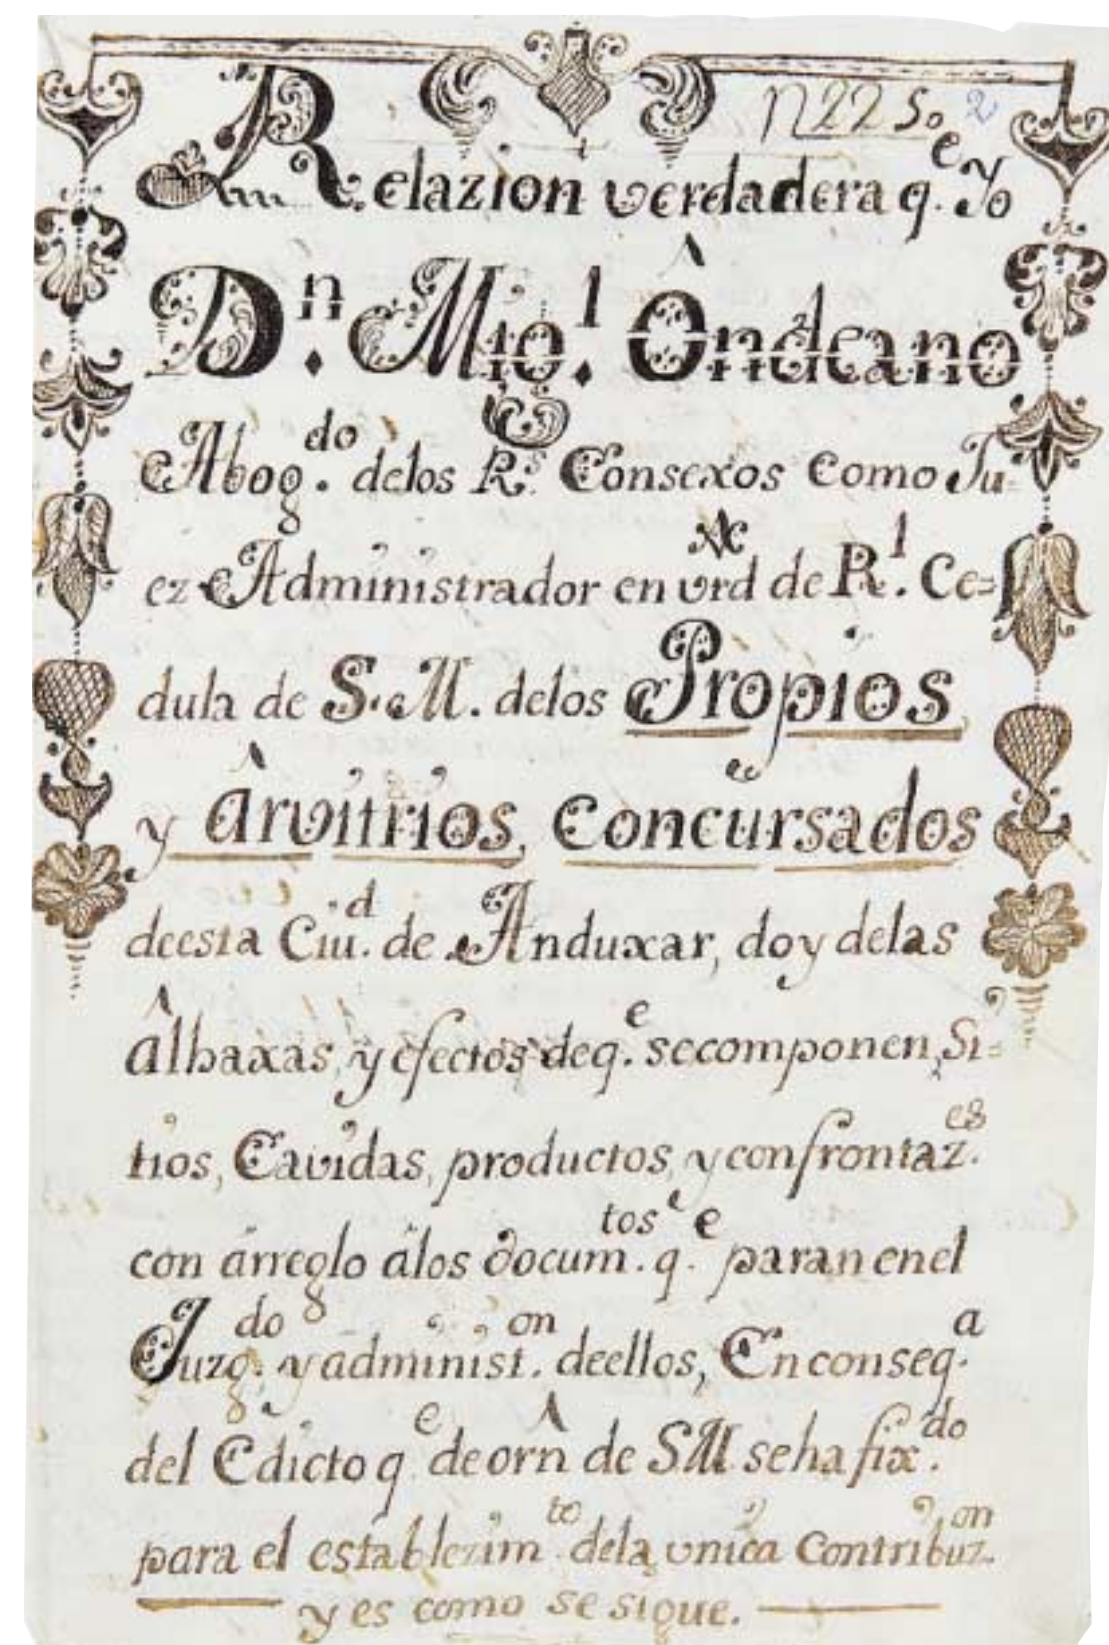 n 22 50 2
Relazion verdadera q.e Yo
D.n Mig.l Ôndeano
Abog.do delos R.s Consexos como Ju=
ez Administrador en vrd de R.l Ce=
dula de S.M. delos Propios
y ârvitrios, Concursados
deesta Ciu.d de Anduxar, doy delas
âlhaxas, y efectos deq.e secomponen, Si=
tios, Cavidas, productos, y confrontaz.es
con árreglo álos docum.tos q.e paran enel
Juzg.do y administ.on deellos, En conseq.a
del Edicto q.e de orñ de SM. seha fix.do
para el establezim.to dela vnica Contribuz.on
y es como se sigue.